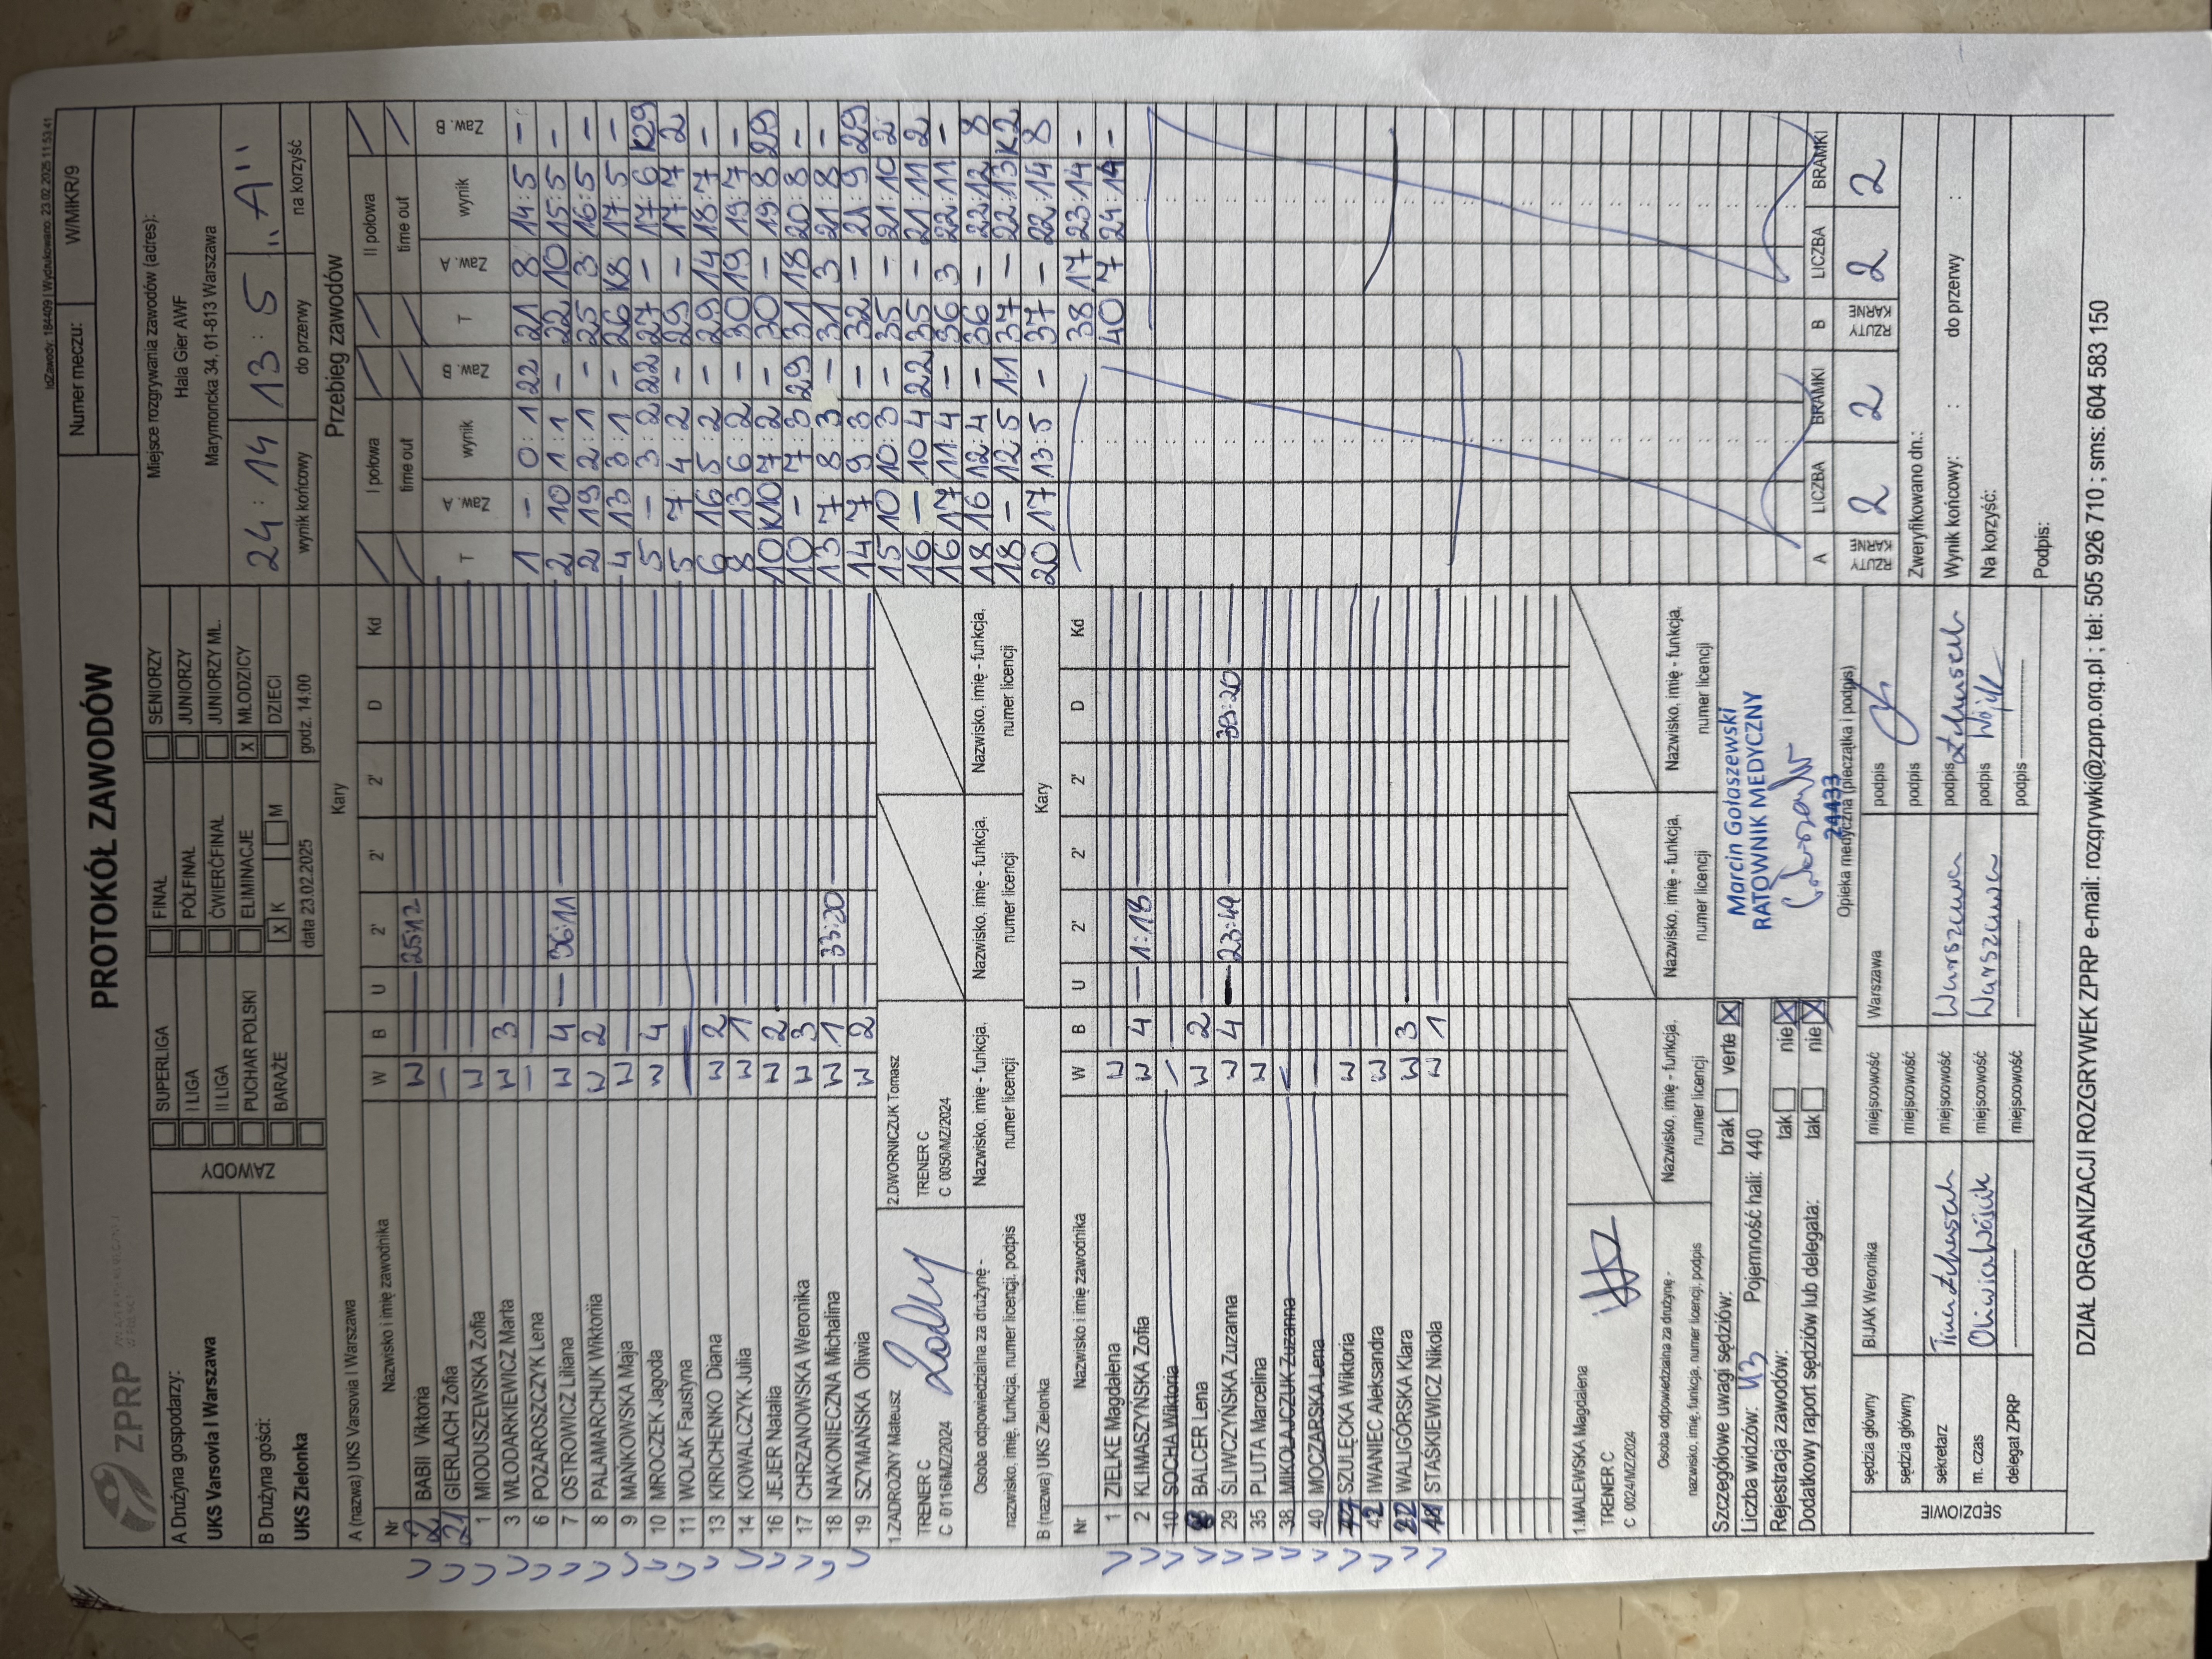 IdZawody: 184409 | Wydrukowano: 23.02.2025 11:53:41
ZPRP
PROTOKÓŁ ZAWODÓW
Numer meczu: W/MłKR/9
A Drużyna gospodarzy:
UKS Varsovia I Warszawa
B Drużyna gości:
UKS Zielonka
ZAWODY
SUPERLIGA FINAŁ SENIORZY
I LIGA PÓŁFINAŁ JUNIORZY
II LIGA ĆWIERĆFINAŁ JUNIORZY MŁ.
PUCHAR POLSKI ELIMINACJE X MŁODZICY
BARAŻE X K M DZIECI
data 23.02.2025 godz. 14.00
Miejsce rozgrywania zawodów (adres):
Hala Gier AWF
Marymoncka 34, 01-813 Warszawa
24 : 14 13 : 5 „A"
wynik końcowy do przerwy na korzyść
A (nazwa) UKS Varsovia I Warszawa Kary
Nr Nazwisko i imię zawodnika W B U 2' 2' 2' D Kd
BABII Viktoria W 25:12
GIERLACH Zofia
MIODUSZEWSKA Zofia W
3 WŁODARKIEWICZ Marta W 3
6 POZAROSZCZYK Lena
7 OSTROWICZ Liliana W 4 36:11
8 PALAMARCHUK Wiktoriia W 2
9 MAŃKOWSKA Maja W
10 MROCZEK Jagoda W 4
11 WOLAK Faustyna
13 KIRICHENKO Diana W 2
14 KOWALCZYK Julia W 1
16 JEJER Natalia W 2
17 CHRZANOWSKA Weronika W 3
18 NAKONIECZNA Michalina W 1 33:20
19 SZYMAŃSKA Oliwia W 2
1.ZADROŻNY Mateusz 2.DWORNICZUK Tomasz
TRENER C TRENER C
C 0116/MZ/2024 C 0050/MZ/2024
Osoba odpowiedzialna za drużynę - nazwisko, imię, funkcja, numer licencji, podpis
Nazwisko, imię - funkcja, numer licencji
Nazwisko, imię - funkcja, numer licencji
Nazwisko, imię - funkcja, numer licencji
B (nazwa) UKS Zielonka Kary
Nr Nazwisko i imię zawodnika W B U 2' 2' 2' D Kd
1 ZIELKE Magdalena W
2 KLIMASZYŃSKA Zofia W 4 1:18
10 SOCHA Wiktoria
8 BALCER Lena W 2
29 ŚLIWCZYŃSKA Zuzanna W 4 23:49 33:20
35 PLUTA Marcelina W
38 MIKOŁAJCZUK Zuzanna
40 MOCZARSKA Lena
SZULĘCKA Wiktoria W
42 IWANIEC Aleksandra W
22 WALIGÓRSKA Klara W 3
STAŚKIEWICZ Nikola W 1
1.MALEWSKA Magdalena
TRENER C
C 0024/MZ/2024
Osoba odpowiedzialna za drużynę - nazwisko, imię, funkcja, numer licencji, podpis
Nazwisko, imię - funkcja, numer licencji
Nazwisko, imię - funkcja, numer licencji
Nazwisko, imię - funkcja, numer licencji
Przebieg zawodów
I połowa II połowa
time out time out
T Zaw. A wynik Zaw. B T Zaw. A wynik Zaw. B
1 - 0:1 22 21 8 14:5 -
2 10 1:1 - 22 10 15:5 -
2 19 2:1 - 25 3 16:5 -
4 13 3:1 - 26 K8 17:5 -
5 - 3:2 22 27 - 17:6 K29
5 7 4:2 - 29 - 17:7 2
6 16 5:2 - 29 14 18:7 -
8 13 6:2 - 30 19 19:7 -
10 K10 7:2 - 30 - 19:8 29
10 - 7:3 29 31 18 20:8 -
13 7 8:3 - 31 3 21:8 -
14 7 9:3 - 32 - 21:9 29
15 10 10:3 - 35 - 21:10 2
16 - 10:4 22 35 - 21:11 2
16 17 11:4 - 36 3 22:11 -
18 16 12:4 - 36 - 22:12 8
18 - 12:5 11 37 - 22:13 K2
20 17 13:5 - 37 - 22:14 8
38 17 23:14 -
40 7 24:14 -
A LICZBA BRAMKI B LICZBA BRAMKI
RZUTY KARNE 2 2 RZUTY KARNE 2 2
Szczegółowe uwagi sędziów: brak verte X
Liczba widzów: 43 Pojemność hali: 440
Rejestracja zawodów: tak nie X
Dodatkowy raport sędziów lub delegata: tak nie X
Marcin Gołaszewski
RATOWNIK MEDYCZNY
24433
Opieka medyczna (pieczątka i podpis)
SĘDZIOWIE
sędzia główny BIJAK Weronika miejsowość Warszawa podpis
sędzia główny miejsowość podpis
sekretarz miejsowość Warszawa podpis
m. czas Oliwia Wójcik miejsowość Warszawa podpis Wójcik
delegat ZPRP miejsowość podpis
Zweryfikowano dn.:
Wynik końcowy: : do przerwy :
Na korzyść:
Podpis:
DZIAŁ ORGANIZACJI ROZGRYWEK ZPRP e-mail: rozgrywki@zprp.org.pl ; tel: 505 926 710 ; sms: 604 583 150